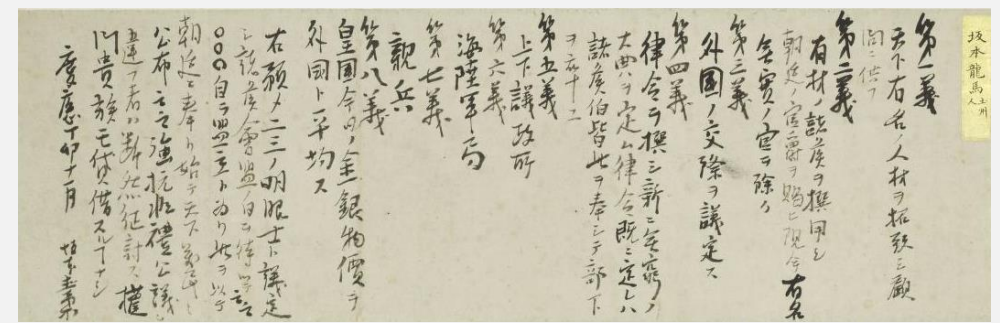 坂本龍馬 土州人
第一義
天下有名ノ人材ヲ招致シ顧
問ニ供フ
第二義
有材ノ諸侯ヲ撰用シ
朝廷ノ官爵ヲ賜ヒ現今有名
無實ノ官ヲ除ク
第三義
外國ノ交際ヲ議定ス
第四義
律令ヲ撰シ新ニ無窮ノ
大典ヲ定ム律令既ニ定レハ
諸侯伯皆此ヲ奉シテ部下
ヲ率ユ
第五義
上下議政所
第六義
海陸軍局
第七義
親兵
第八義
皇国今日ノ金銀物價ヲ
外國ト平均ス
右預メ二三ノ明眼士ト議定
シ諸侯會盟ノ日ヲ待ツテ云云
○○○自ラ盟主ト為リ此ヲ以テ
朝廷ニ奉リ始テ天下萬民ニ
公布云云強抗非禮公議ニ
違フ者ハ断然征討ス權
門貴族モ貸借スルコトナシ
慶應丁卯十一月 坂本直柔